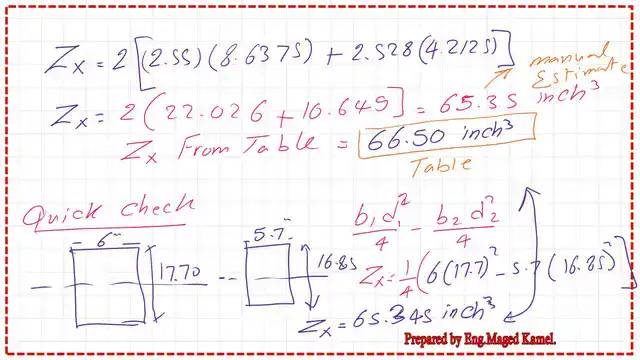 Zx = 2[(2.55)(8.6375) + 2.528(4.2125)]
manual Estimate
Zx = 2(22.026 + 10.649] = 65.35 inch³
Zx From Table = 66.50 inch³
Table
Quick check
6"
17.70
5.7"
16.85
b₁d₁²/4 - b₂d₂²/4
Zx = 1/4(6(17.7)² - 5.7(16.85)²)]
Zx = 65.345 inch³
Prepared by Eng.Maged Kamel.